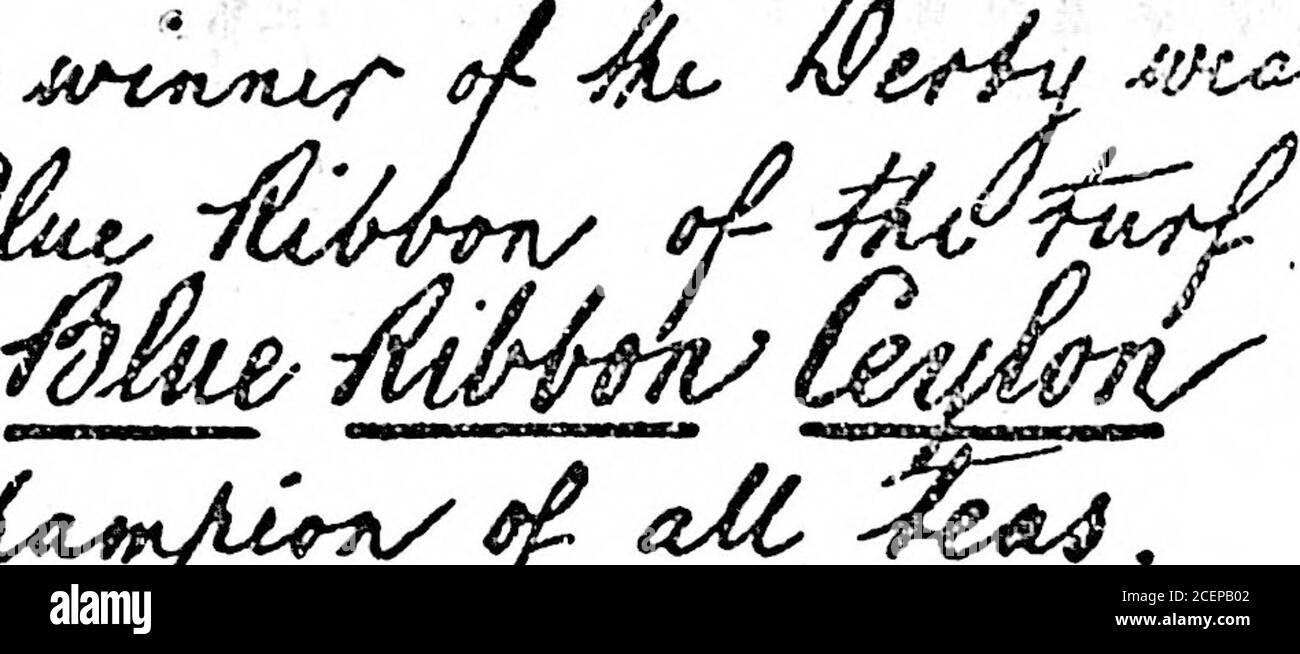 winner of the Derby wea
lue Ribbon of the turf.
Blue Ribbon Ceylon
hampion of all teas.
alamy
Image ID: 2CEPB02
www.alamy.com